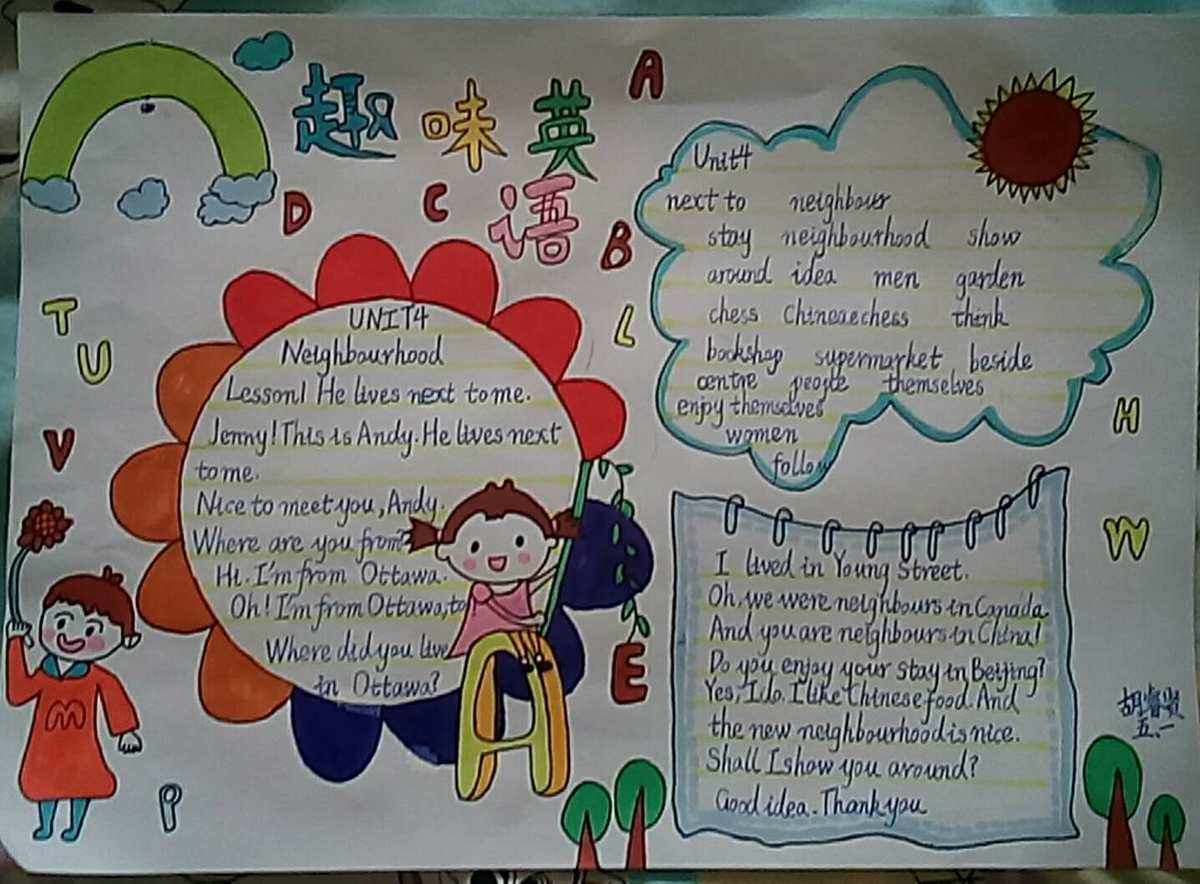 趣味英
语
A
D
C
B
T
U
L
V
H
W
E
P
M
UNIT4
Neighbourhood
Lesson1 He lives next to me.
Jenny! This is Andy. He lives next
to me.
Nice to meet you, Andy.
Where are you from?
Hi. I'm from Ottawa.
Oh! I'm from Ottawa, to
Where did you live
in Ottawa?
Unit4
next to neighbour
stay neighbourhood show
around idea men garden
chess Chinese chess think
bookshop supermarket beside
centre people themselves
enjoy themselves
women
follow
I lived in Young Street.
Oh, we were neighbours in Canada.
And you are neighbours in China!
Do you enjoy your stay in Beijing?
Yes, I do. I like Chinese food. And
the new neighbourhood is nice.
Shall I show you around?
Good idea. Thank you
五、一